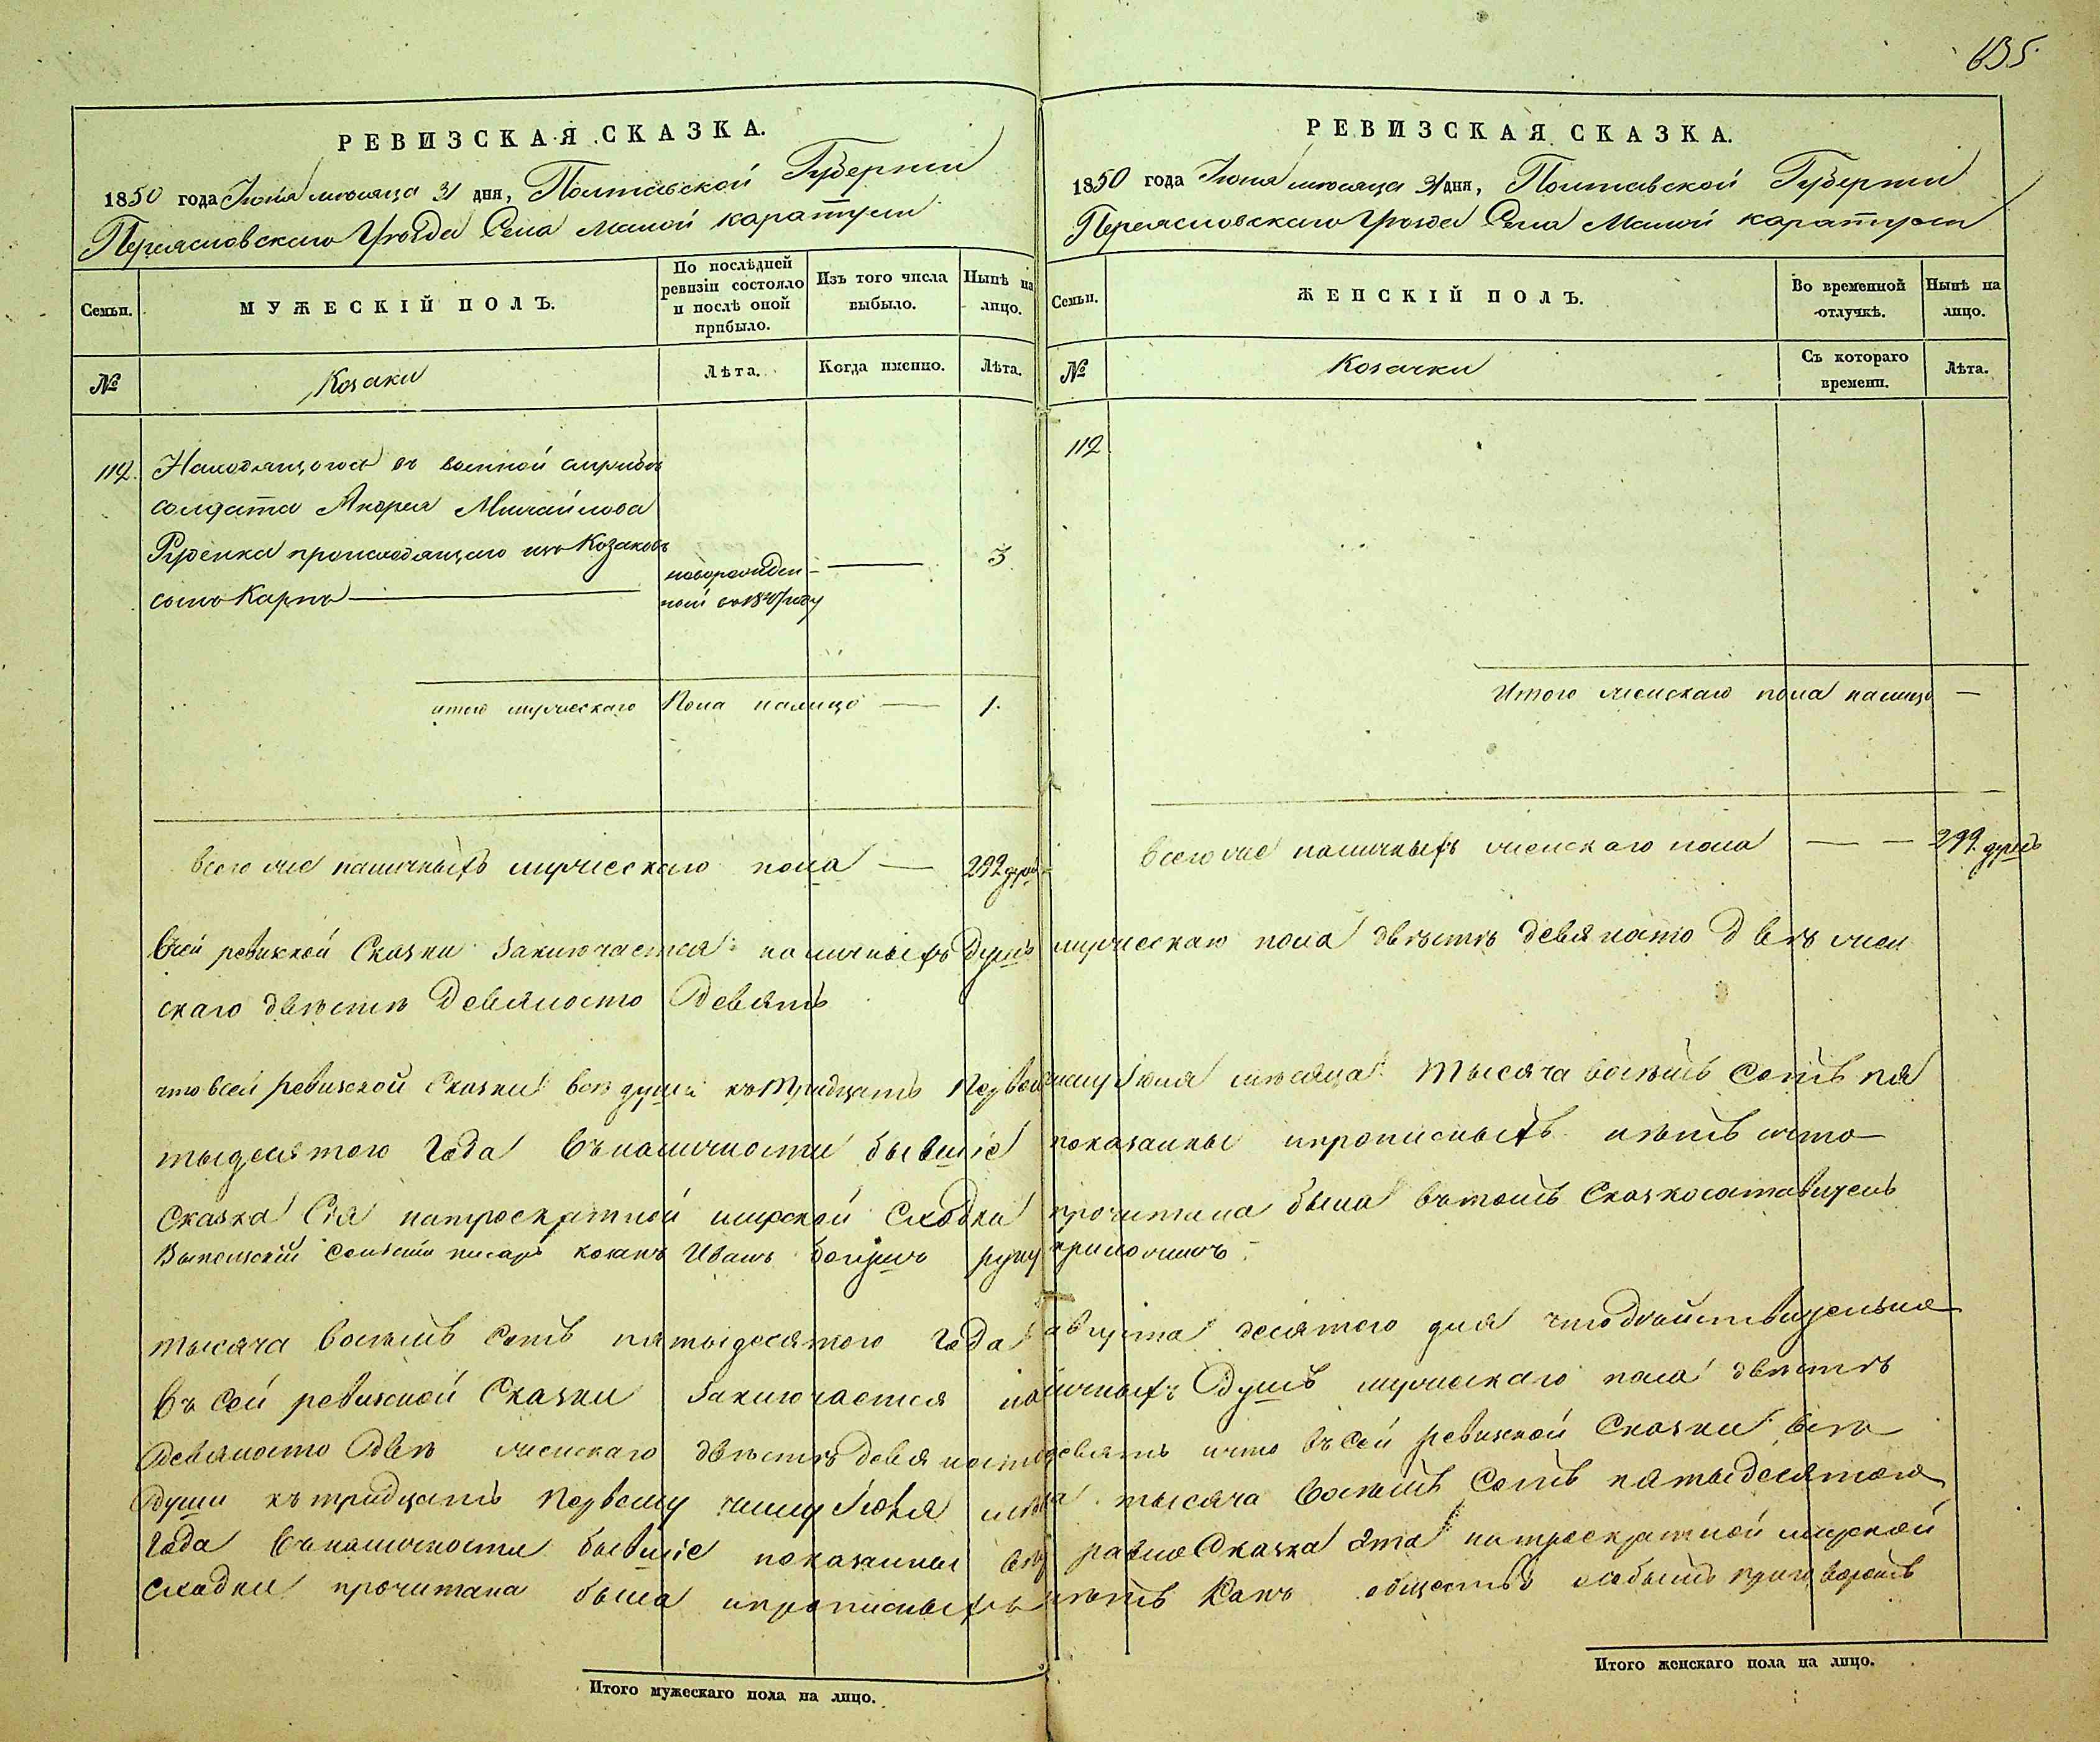 635.
РЕВИЗСКАЯ СКАЗКА.
1850 года Июля месяца 31 дня, Полтавской Губернии
Переясловского Уезда Села Малой каратули
Семьи. МУЖЕСКІЙ ПОЛЪ. По послѣдней ревизіи состояло и послѣ оной прибыло. Изъ того числа выбыло. Нынѣ на лицо.
№ Козаки Лѣта. Когда именно. Лѣта.
112. Находящогося въ военной службѣ
солдата Андрея Михайлова
Руденка происходящаго изъ Козаковъ
сынъ Карпъ новорожден-
ной въ 1847 году — 3
итого мужескаго Пола налицо — 1.
Всего же наличныхъ мужескаго пола — 292 душ
РЕВИЗСКАЯ СКАЗКА.
1850 года Июля месяца 31 дня, Полтавской Губернии
Переясловскаго Уезда Села Малой каратули
Семьи. ЖЕНСКІЙ ПОЛЪ. Во временной отлучкѣ. Нынѣ на лицо.
№ Козачки Съ котораго времени. Лѣта.
112
Итого женскаго пола налицо —
Всего же наличныхъ женскаго пола — — 299 душъ
Всей ревизкой Сказки Заключается наличныхъ Душъ мужескаго пола двѣстѣ девяносто Двѣ жен
скаго двѣстѣ Девяносто Девять
что всей ревизской Сказки всѣ души къ тридцать Первому числу Июля мѣсяца Тысяча восемъ Сотъ пя
тыдесятого Года Въ наличности бывшіе показанны ипрописныхъ нѣтъ ичто
Сказка Сія натроекратной мирской Сходки прочитана была вътомъ Сказкосоставитель
Выполскій Селский писарь козакъ Иванъ руку приложилъ
Тысяча Восемъ Сотъ пятыдесятого Года августа десятого дня что действительно
Въ Сей ревизкой Сказки Заключается наличныхъ Душъ мужескаго пола двѣстѣ
Девяносто Двѣ женскаго двѣстѣ девяносто девять ичто въ Сей ревизкой Сказки всѣ
Души къ тридцать Первому числу Июля месяца тысяча Восемъ Сотъ пятыдесятого
Года Въ наличности бывшіе показанны равно Сказка эта натроекратной мирской
Сходки прочитана была ипрописныхъ нѣтъ Какъ общество особымъ приговоромъ
Итого мужескаго пола на лицо.
Итого женскаго пола на лицо.